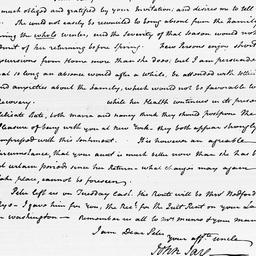 much obliged and gratified by your Invitation, and desires me to tell
She could not easily be reconciled to being absent from the Family
the whole winter, and the Severity of that Season would not
admit of her returning before Spring. Few Persons enjoy short
excursions from Home more than she does; but I am persuaded
that so long an absence would after a while, be attended with
and anxieties about the Family, which would not be favorable to
recovery. while her Health continues in its present
delicate State, both maria and nancy think they should postpone the
Pleasure of being with you at New York. they both appear strongly
impressed with this Sentiment. It is however an agreable
circumstance, that your aunt is much better now than she has been
at certain periods since her Return. what changes may again
take place, cannot be foreseen.
Peter left us on Tuesday last. the Route will be thro' Bedford
I gave him for you, the Rect. for the Quit Rent on your Land
in Washington — Remember us all to Mrs. Munro & your
I am Dear Peter
your affte. uncle
John Jay